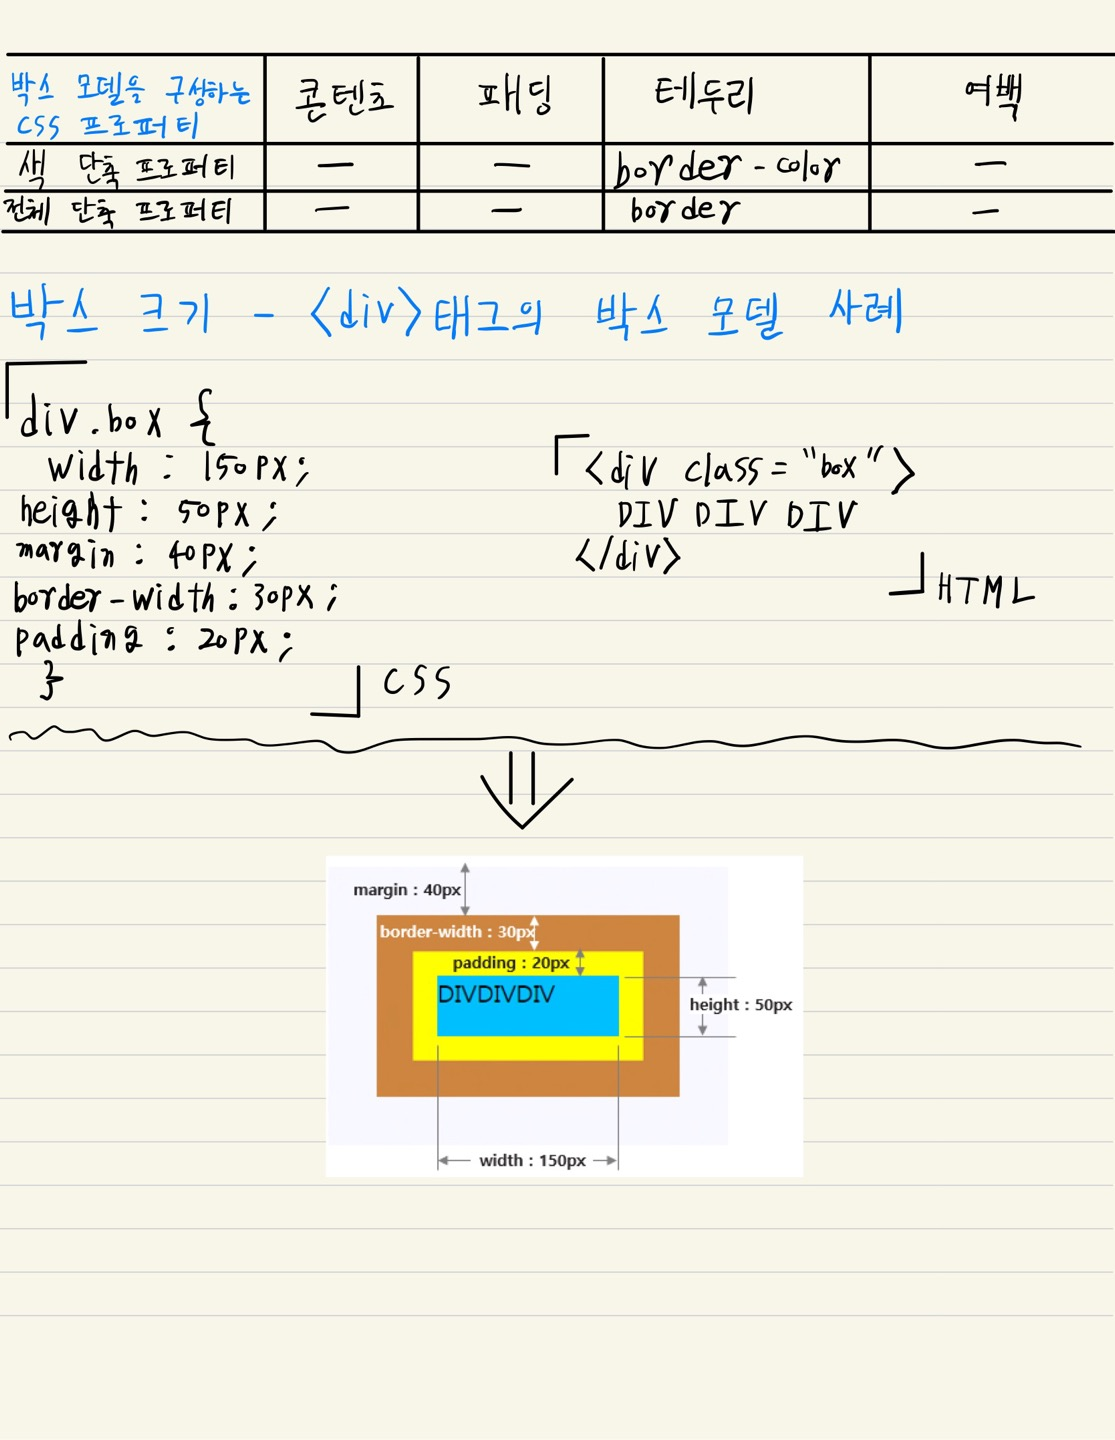 박스 모델을 구성하는 콘텐츠 패딩 테두리 여백
CSS 프로퍼티
색 단축 프로퍼티 — — border-color —
전체 단축 프로퍼티 — — border —
박스 크기 - <div>태그의 박스 모델 사례
div.box {
width : 150px;
height : 50px;
margin : 40px;
border-width : 30px;
padding : 20px;
}
CSS
<div class = "box">
DIV DIV DIV
</div>
HTML
margin : 40px
border-width : 30px
padding : 20px
DIVDIVDIV
height : 50px
width : 150px